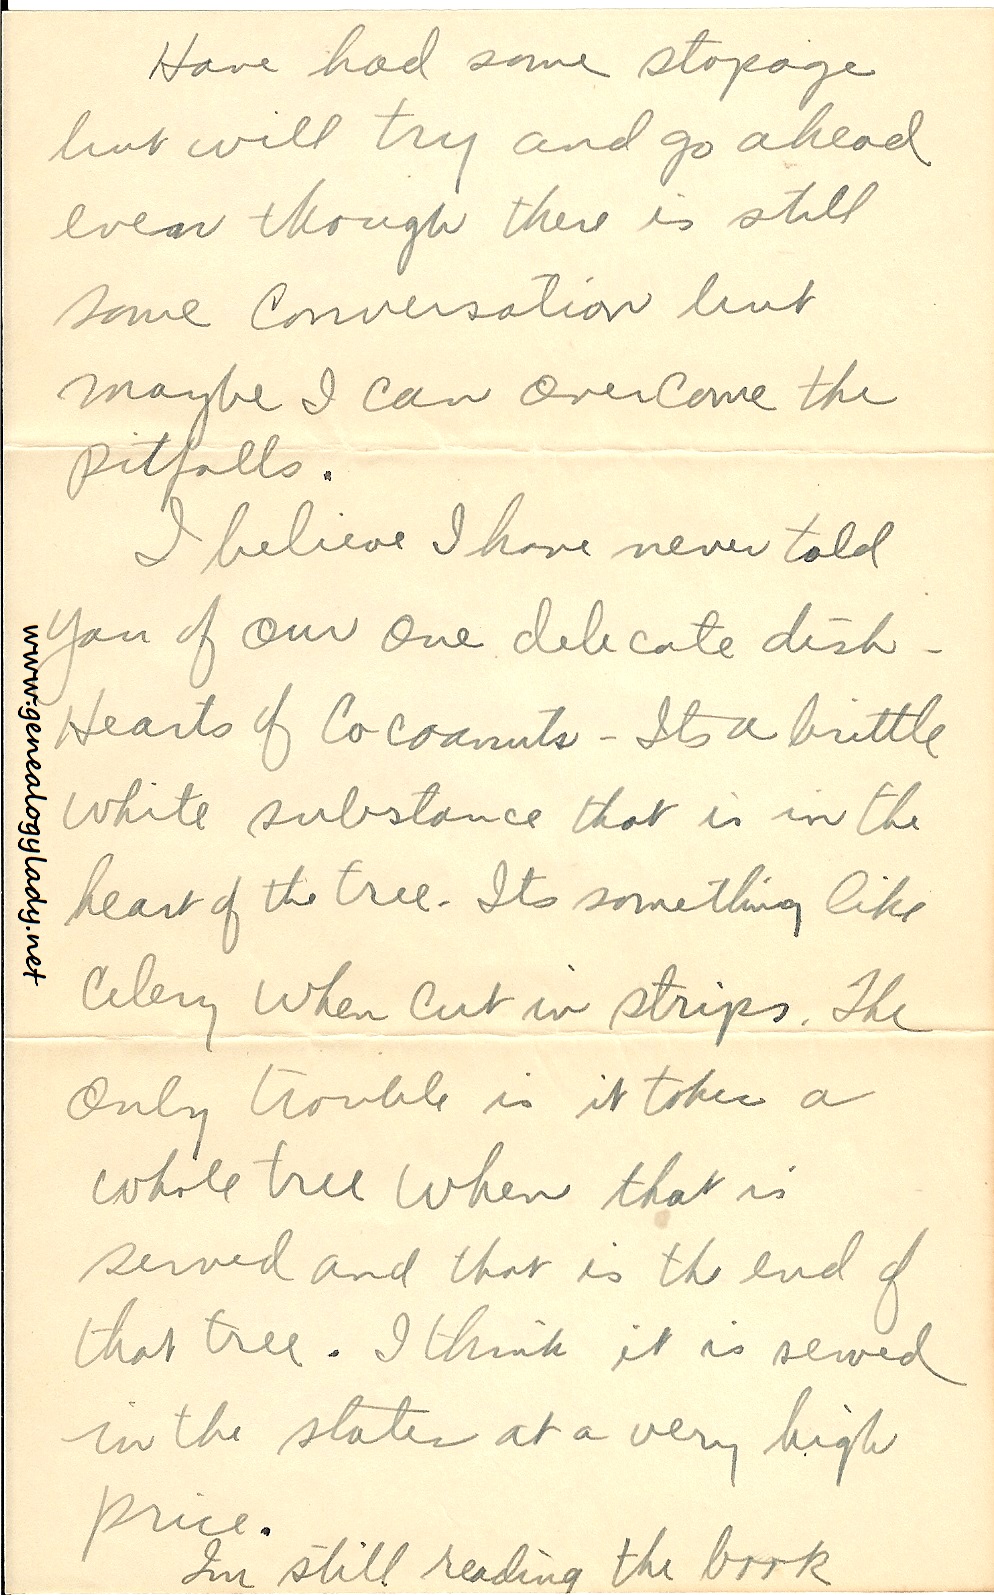 Have had some stopage
but will try and go ahead
even though there is still
some conversation but
maybe I can overcome the
pitfalls.
I believe I have never told
you of our one delicate dish -
Hearts of Cocoanuts - Its a brittle
white substance that is in the
heart of the tree. Its something like
celery when cut in strips. The
only trouble is it takes a
whole tree when that is
served and that is the end of
that tree. I think it is served
in the states at a very high
price.
Im still reading the book
www.genealogylady.net